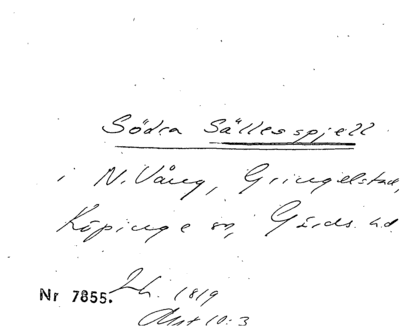 Södra Sällesspjell
i N. Vång, Gringelstad,
Köpinge sn, Gärds hd
Nr 7855. 1819
Akt 10:3